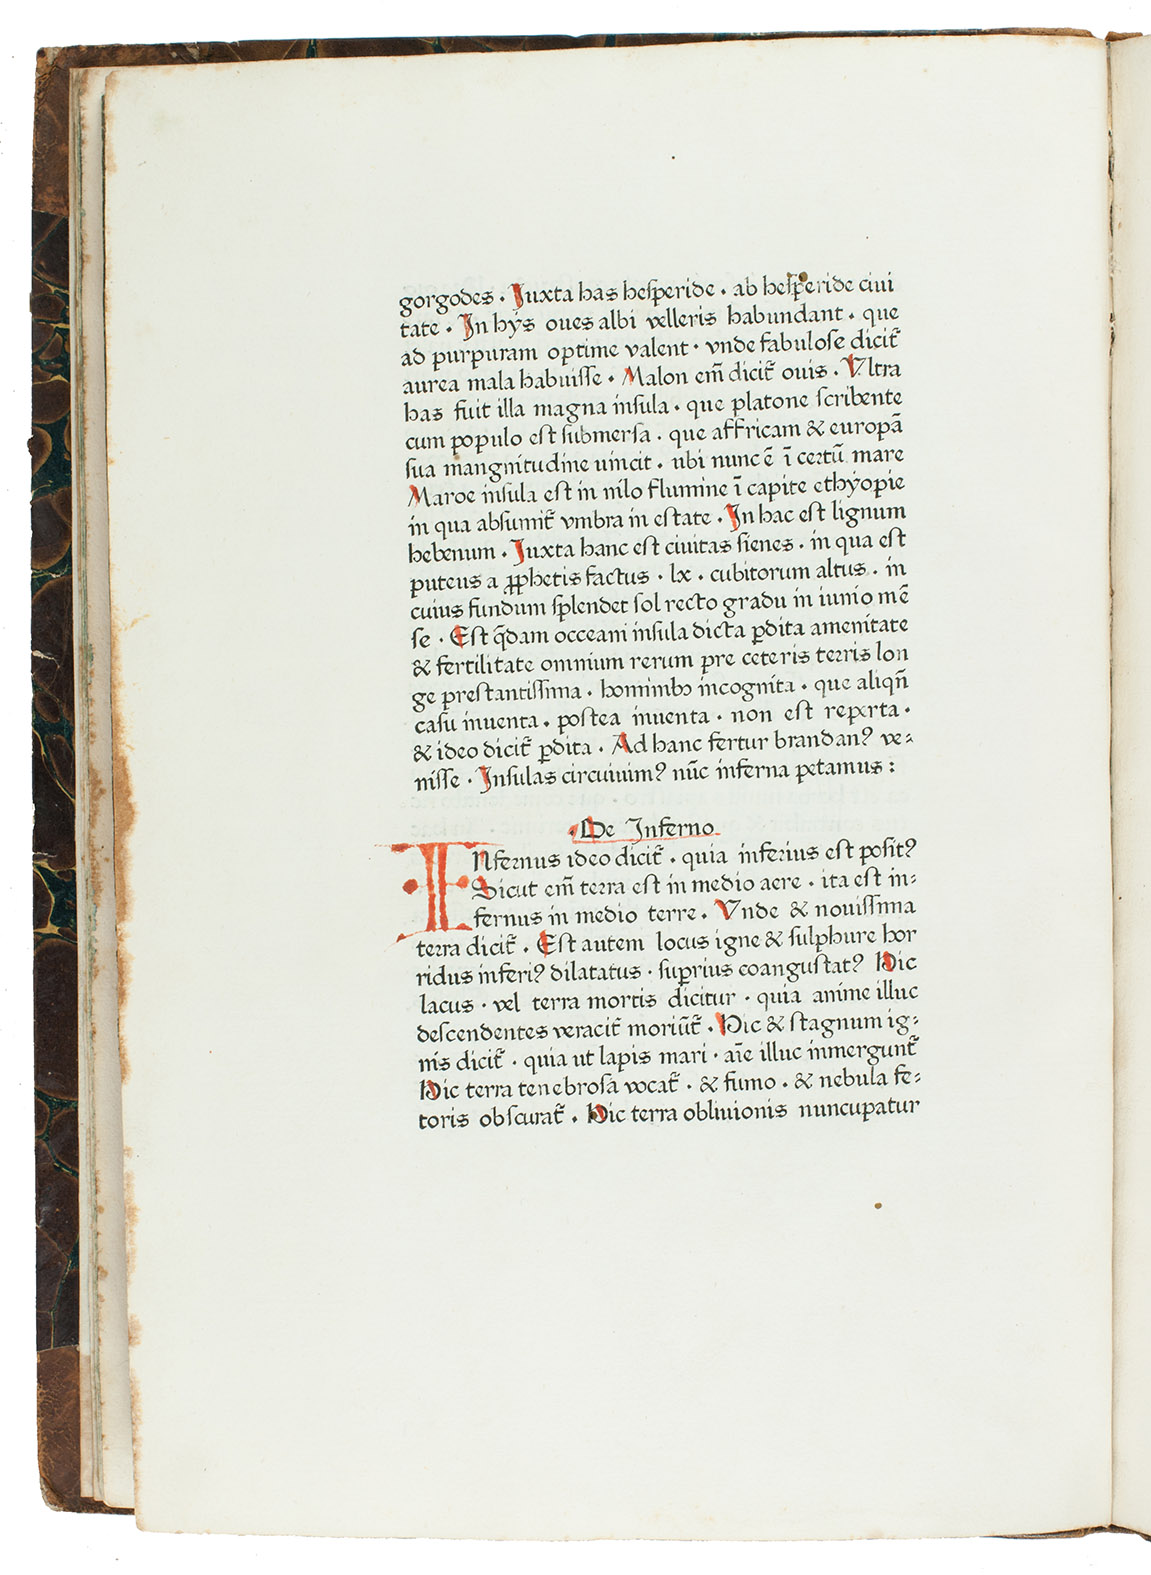 gorgodes . Juxta has hesperide . ab hesperide ciui
tate . In hys oues albi velleris habundant . que
ad purpuram optime valent . vnde fabulose dicit᷑
aurea mala habuisse . Malon em̄ dicit᷑ ouis . Vltra
has fuit illa magna insula . que platone scribente
cum populo est submersa . que affricam & europā
sua mangnitudine uincit . ubi nunc ē ī certū mare
Maroe insula est in nilo flumine ī capite ethyopie
in qua absumit᷑ vmbra in estate . In hac est lignum
hebenum . Juxta hanc est ciuitas sienes . in qua est
puteus a ꝓphetis factus . lx . cubitorum altus . in
cuius fundum splendet sol recto gradu in iunio mē
se . Est q̄dam occeani insula dicta ꝑdita amenitate
& fertilitate omnium rerum pre ceteris terris lon
ge prestantissima . hominibꝫ incognita . que aliqn̄
casu inuenta . postea inuenta . non est reperta .
& ideo dicit᷑ ꝑdita . Ad hanc fertur brandanꝰ ve⸗
nisse . Insulas circuiuimꝰ nūc inferna petamus :
. De Inferno
INfernus ideo dicit᷑ . quia inferius est positꝰ
Sicut em̄ terra est in medio aere . ita est in⸗
fernus in medio terre . Vnde & nouissima
terra dicit᷑ . Est autem locus igne & sulphure hor
ridus inferiꝰ dilatatus . suprius coangustatꝰ Hic
lacus . vel terra mortis dicitur . quia anime illuc
descendentes veracit᷑ moriūt᷑ . Hic & stagnum ig⸗
nis dicit᷑ . quia ut lapis mari . aīe illuc inmergunt᷑
Hic terra tenebrosa vocat᷑ . & fumo . & nebula fe⸗
toris obscurat᷑ . Hic terra obliuionis nuncupatur